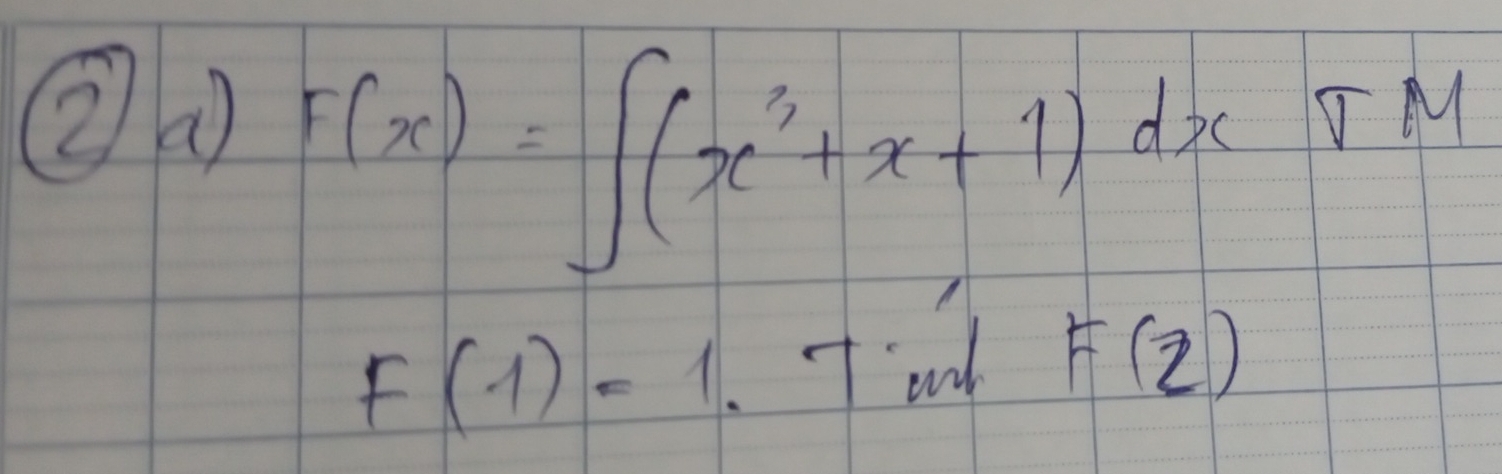 ② a) F(x) = ∫(x³ + x + 1) dx TM
F(1) = 1. Tính F(2)